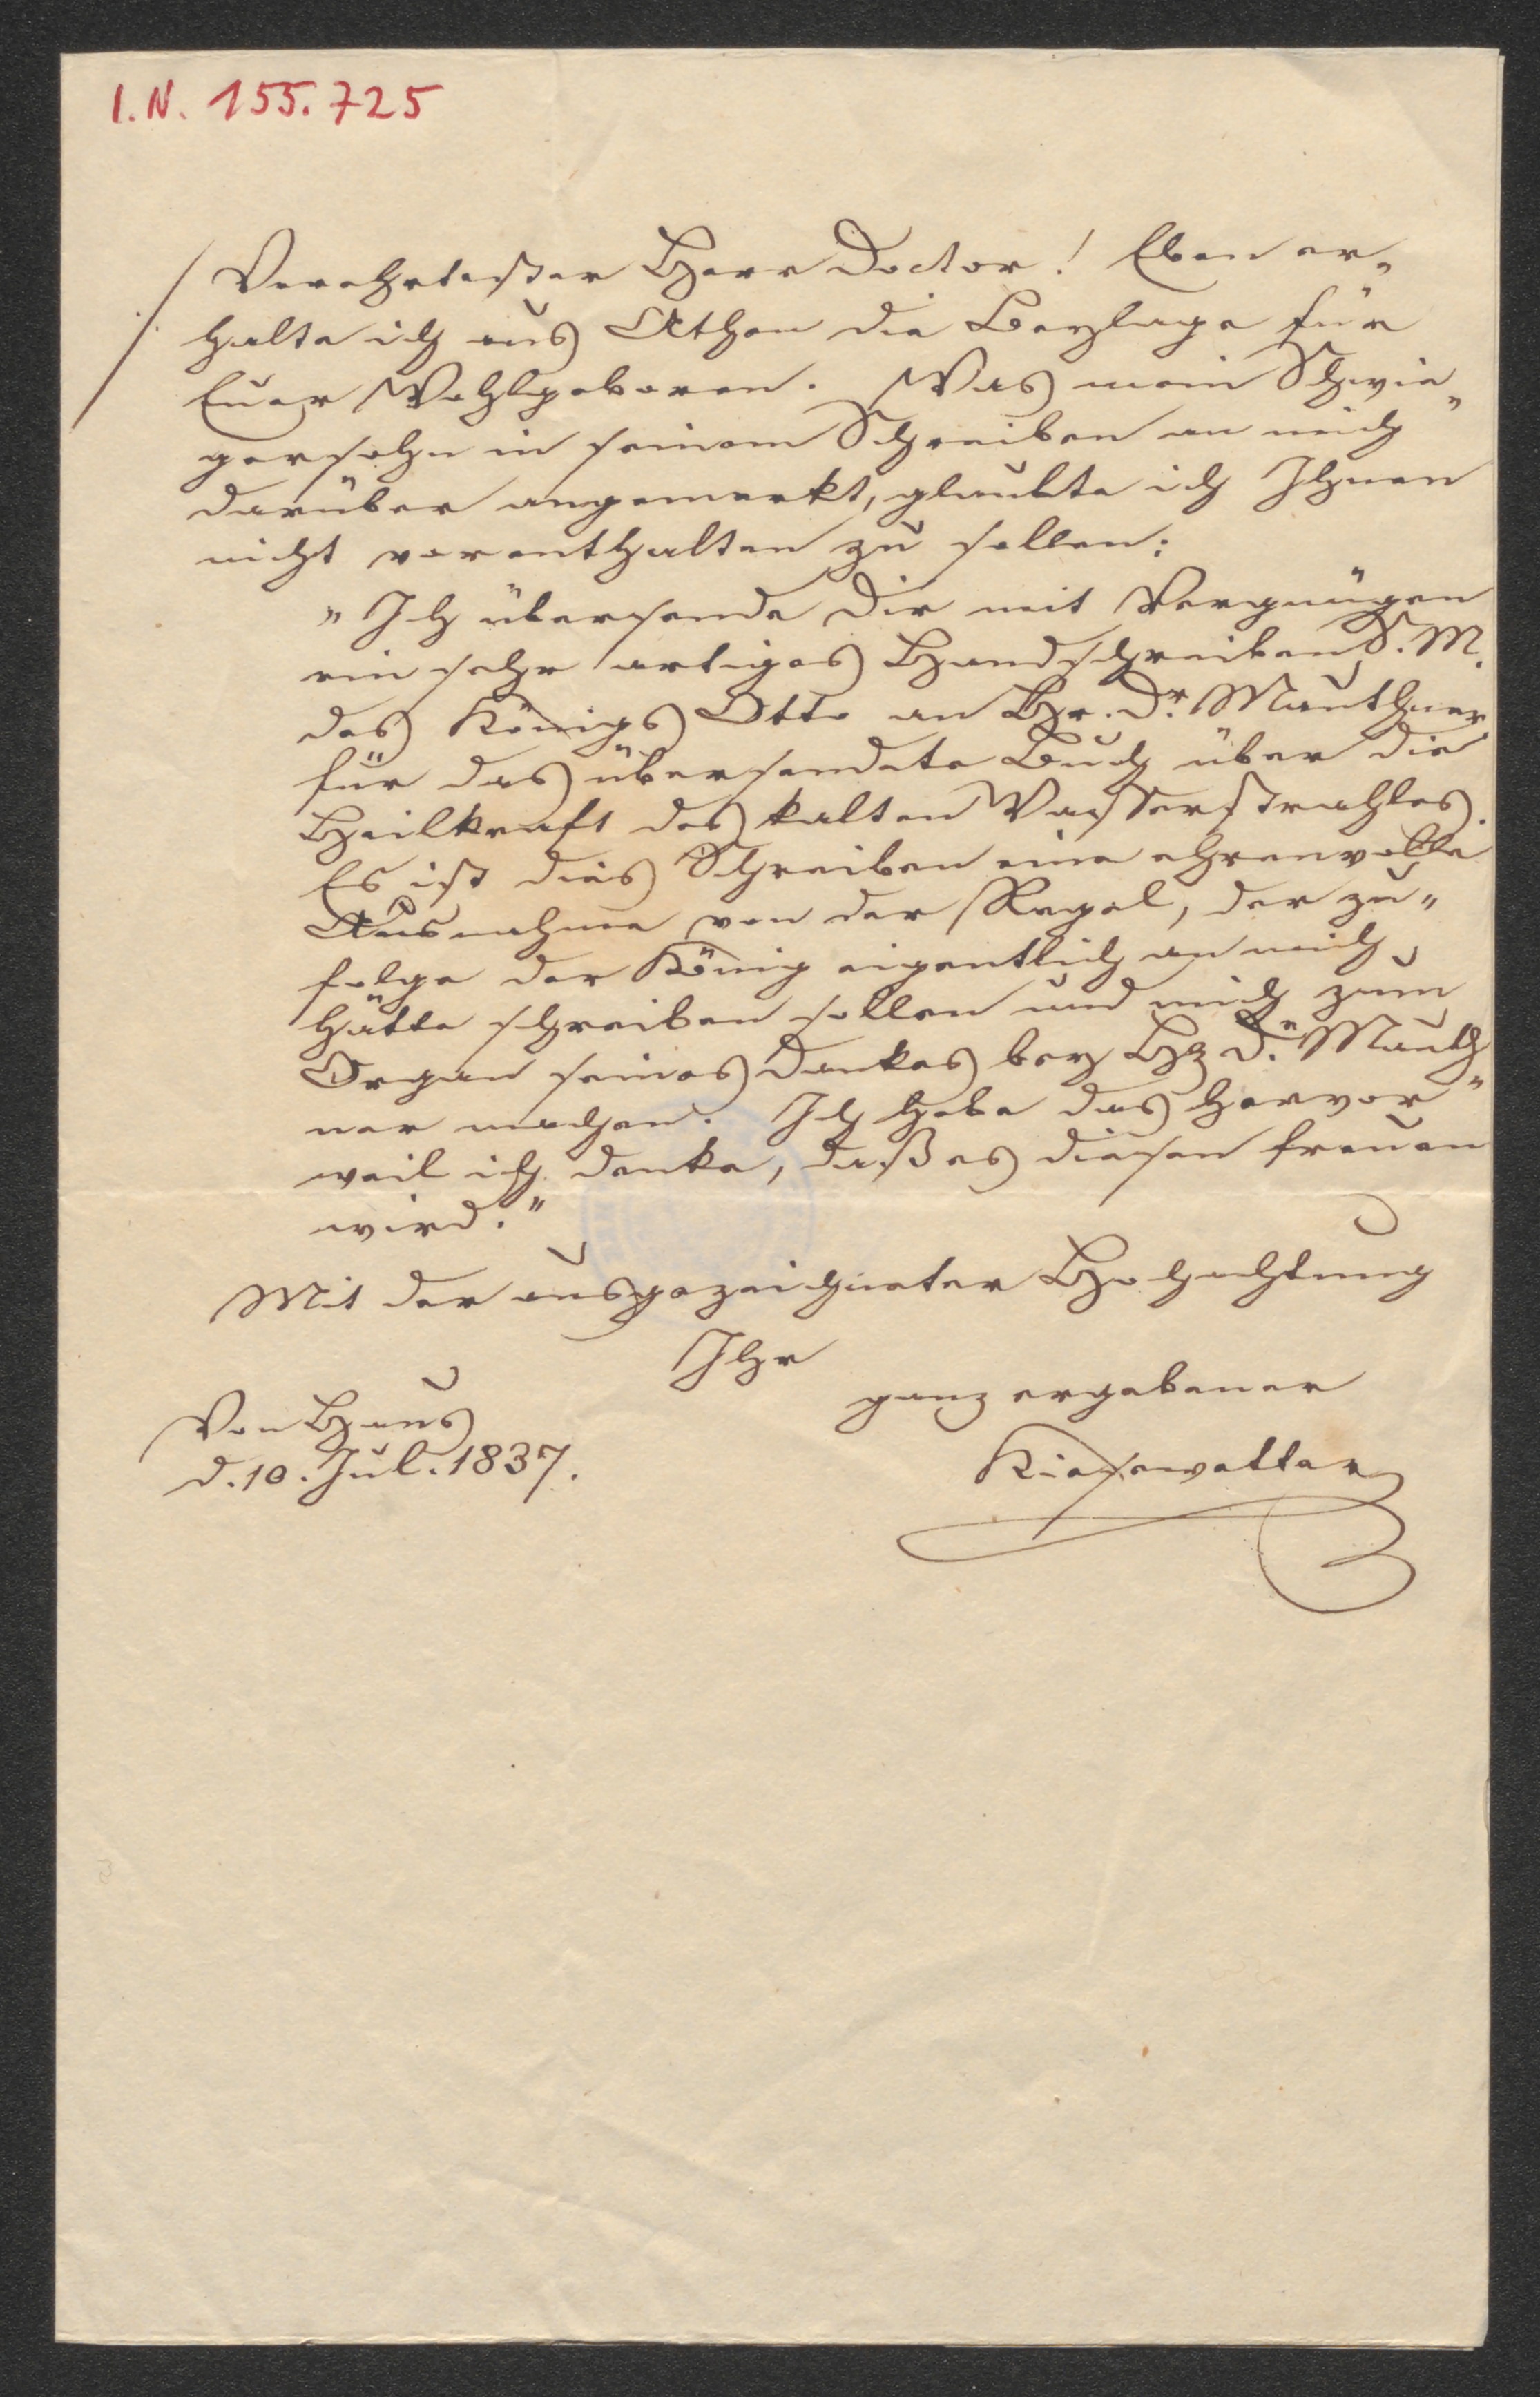 I.N. 155.725
Verehrtester Herr Doctor! Eben er-
halte ich aus Athen die Beylage für
Euer Wohlgeboren. Was mein Schwie-
gersohn in seinem Schreiben an mich
darüber angemerkt, glaubte ich Ihnen
nicht vorenthalten zu sollen:
"Ich übersende Dir mit Vergnügen
ein sehr artiges Handschreiben S. M.
des Königs Otto an Hr. Dr. Mauthner
für das übersendete Buch über die
Heilkraft des kalten Wasserstrahles.
Es ist dies Schreiben eine ehrenvolle
Ausnahme von der Regel, der zu-
folge der König eigentlich an mich
hätte schreiben sollen und mich zum
Organ seines Dankes bey H Dr. Mauth-
ner machen. Ich hebe das hervor
weil ich denke, daß es diesen freuen
wird."
Mit der ausgezeichneter Hochachtung
Ihr
ganz ergebener
Von Haus
d. 10. Jul. 1837.
Kiesewetter